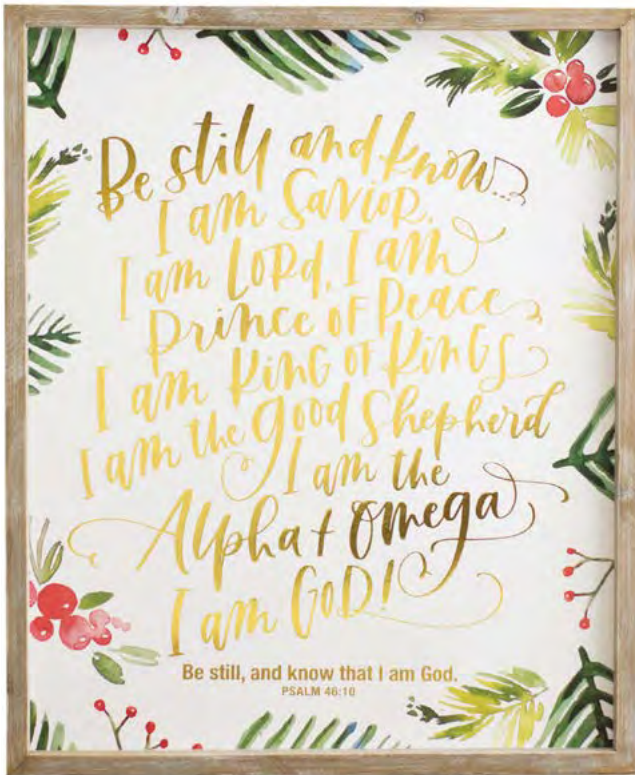 Be still and know...
I am Savior.
I am LORD, I am
Prince of Peace
I am King of Kings
I am the good Shepherd
I am the
Alpha + Omega
I am GOD!
Be still, and know that I am God.
PSALM 46:10